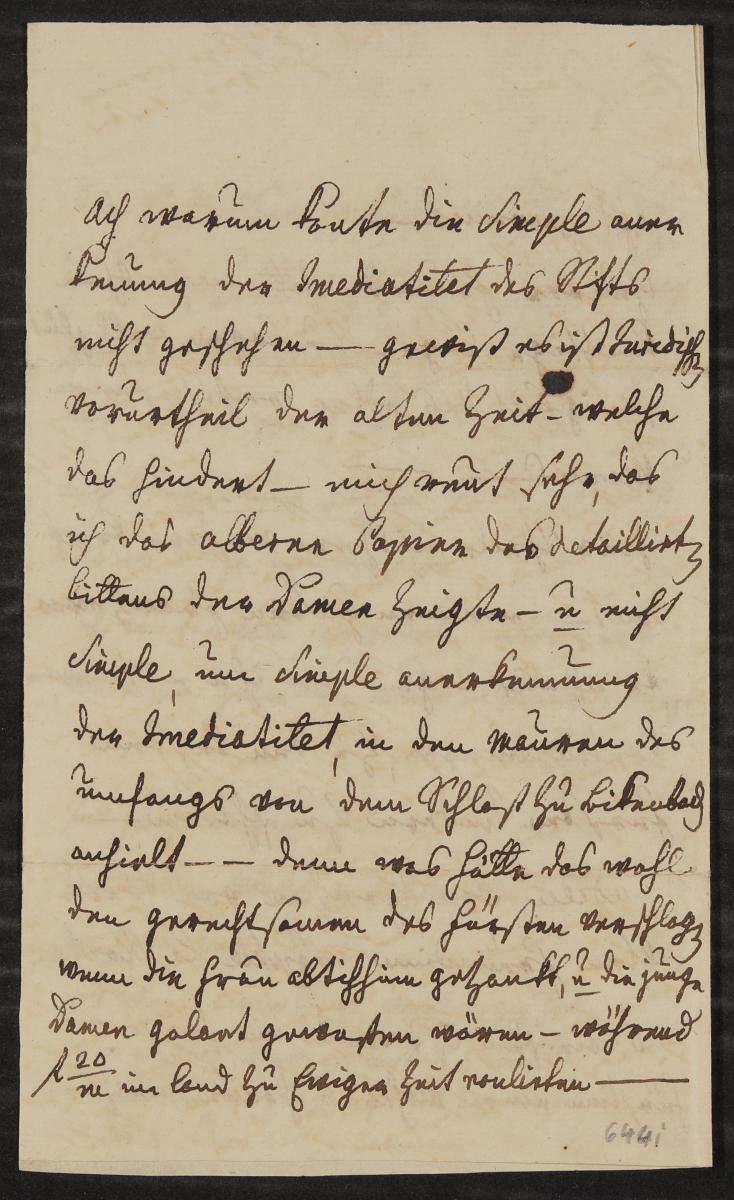 Ach warum konte die Simple aner
kenung der Imediatitet des Stifts
nicht geschehen — gewiß es ist Juridisch
vorurtheil der alten Zeit – welche
das hindert — mich reut sehr, das
ich das alberne Papier des detaillirten
bittens der Damen Zeigte – u nicht
Simple, um Simple anerkennung
der Imediatitet, in den mauren des
umfangs von dem Schloß zu bikenbach
anhielt — — denn was hätte das wohl
den gerechtsamen des fürsten verschlagen
wenn die frau abtißin gezankt, u die junge
Damen galant geweßen wären – während
f 20/m im land zu Ewiger Zeit roulirten —
644i